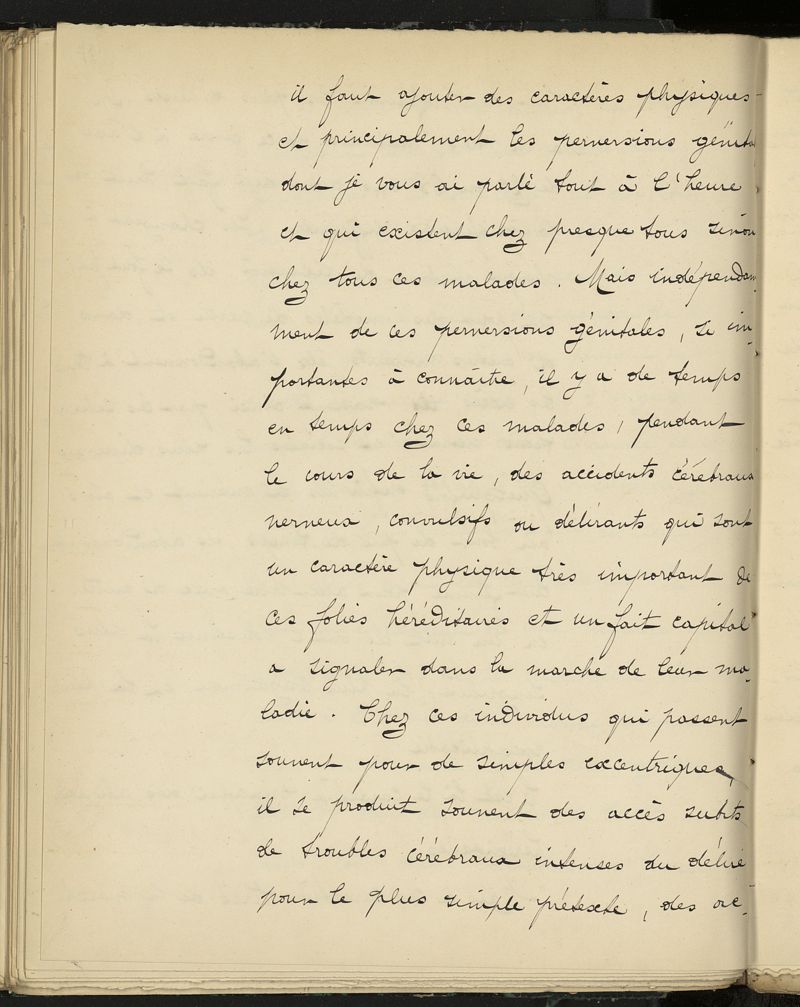 il faut ajouter des caractères physiques
et principalement les perversions génita
dont je vous ai parlé tout à l'heure
et qui existent chez presque tous sinon
chez tous ces malades. Mais indépendam-
ment de ces perversions génitales, si im-
portantes à connaître, il y a de temps
en temps chez ces malades, pendant
le cours de la vie, des accidents cérébraux
nerveux, convulsifs ou délirants qui sont
un caractère physique très important de
ces folies héréditaires et un fait capital
a signaler dans la marche de leur ma-
ladie. Chez ces individus qui passent
souvent pour de simples excentriques,
il se produit souvent des accès subits
de troubles cérébraux intenses du délire
pour le plus simple prétexte, des ac-